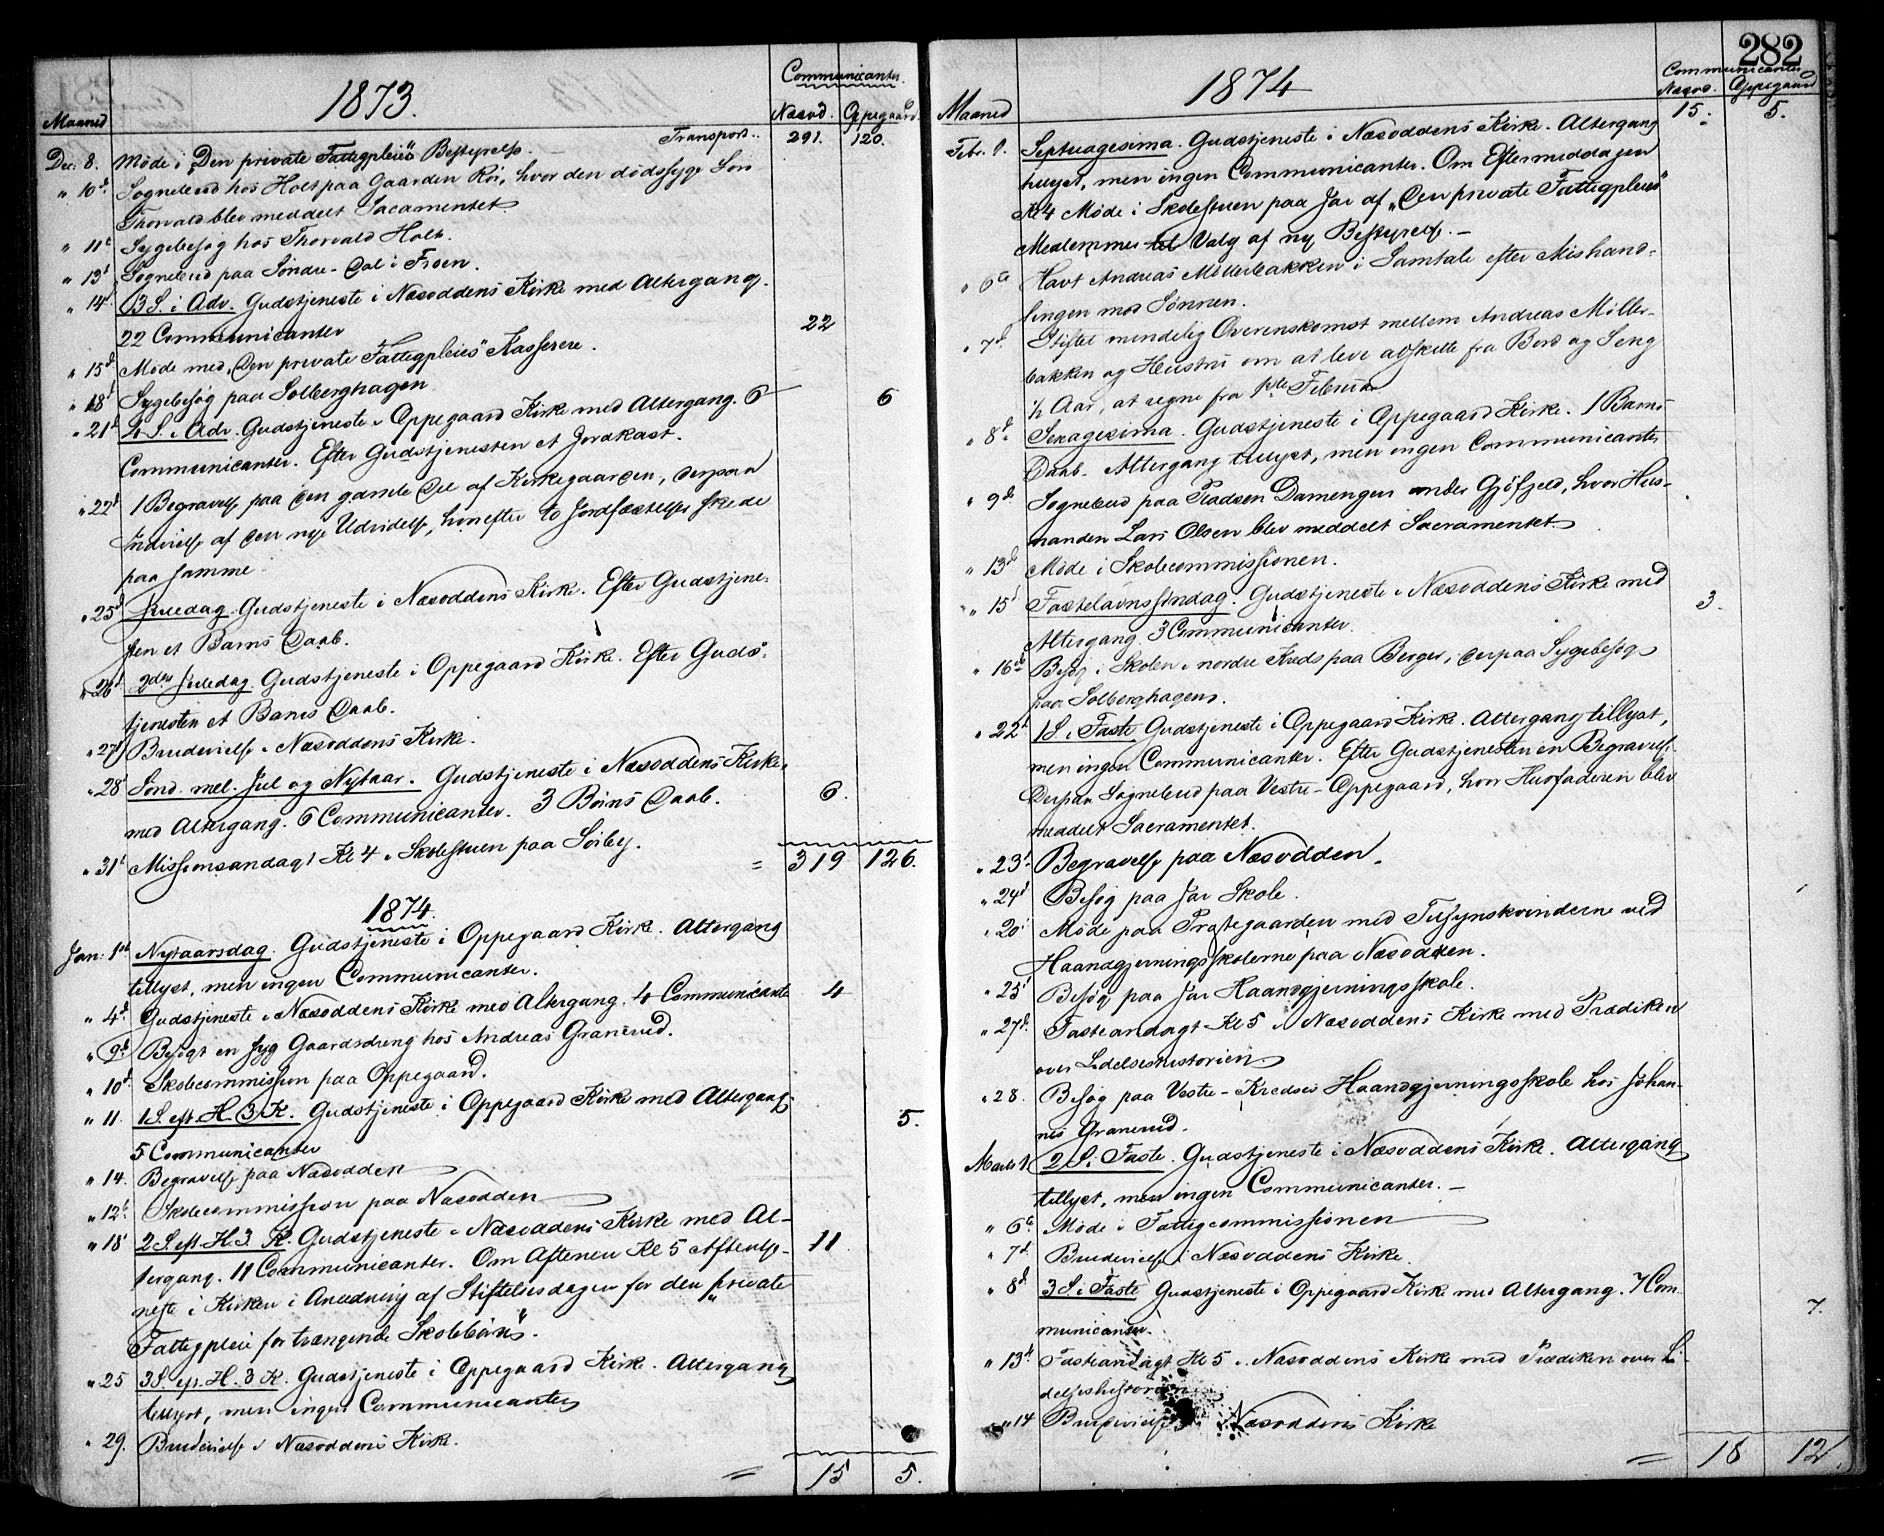 1873.
Communicanter.
Maaned
Næsod. Oppegaard.
Transport.. 291. 120.
Dec. 8. Møde i „Den private Fattigpleies" Bestyrelse.
" 10d. Sognebud hos Holt paa Gaarden Røi, hvor den dødssyge Søn
Thorvald blev meddelt Sacramentet.
" 11t Sygebesøg hos Thorvald Holt.
" 13d Sognebud paa Søndre-Dal i Froen.
" 14d 3 S. i Adv. Gudstjeneste i Næsoddens Kirke med Altergang.
22 Communicanter 22
" 15d Møde med „Den private Fattigpleies" Kasserer.
" 18d Sygebesøg paa Solberghagen
" 21d 4 S. i Adv. Gudstjeneste i Oppegaard Kirke med Altergang. 6 6
Communicanter. Efter Gudstjenesten et Jordkast.
" 22d 1 Begravelse paa den gamle Del af Kirkegaarden, derpaa
Indvielse af den nye Udvidelse, hvorefter to Jordfæstelser skede
paa samme.
" 25d Juledag. Gudstjeneste i Næsoddens Kirke. Efter Gudstjene-
sten et Barns Daab.
" 26d 2den Juledag. Gudstjeneste i Oppegaard Kirke. Efter Guds-
tjenesten et Barns Daab.
" 27d Brudevielse i Næsoddens Kirke.
" 28 Sønd. mel. Jul og Nytaar. Gudstjeneste i Næsoddens Kirke
med Altergang. 6 Communicanter. 3 Børns Daab. 6.
" 31t Missionsandagt Kl 4 i Skolestuen paa Sørby. = 319 126.
1874.
Jan. 1ste Nytaarsdag. Gudstjeneste i Oppegaard Kirke. Altergang
tillyst, men ingen Communicanter.
" 4d. Gudstjeneste i Næsoddens Kirke med Altergang. 4 Communicanter 4
" 9d. Besøgt en syg Gaardsdreng hos Andreas Granerud.
" 10d. Skolecommission paa Oppegaard.
" 11. 1 S. eft. H. 3 K. Gudstjeneste i Oppegaard Kirke med Altergang. 5.
5 Communicanter
" 14. Begravelse paa Næsodden
" 12t. Skolecommission paa Næsodden
" 18 2 S. eft. H. 3. K. Gudstjeneste i Næsoddens Kirke med Al-
tergang. 11 Communicanter. Om Aftenen Kl 5 Aftentje- 11
neste i Kirken i Anledning af Stiftelsesdagen for den „private
Fattigpleie for trængende Skolebørn".
" 25 3 S. eft. H. 3 K. Gudstjeneste i Oppegaard Kirke. Altergang
tillyst, men ingen Communicanter
" 29. Brudevielse i Næsoddens Kirke.
= 15 5.
282
1874
Communicanter
Maaned
Næsod. Oppegaard
15. 5.
Febr. 1. Septuagesima. Gudstjeneste i Næsoddens Kirke. Altergang
tillyst, men ingen Communicanter. Om Eftermiddagen
Kl 4 Møde i Skolestuen paa Jar af „Den private Fattigpleies"
Medlemmer til Valg af ny Bestyrelse. —
" 6te Havt Andreas Møllerbakken i Samtale efter Mishand-
lingen mod Sønnen.
" 7d. Stiftet mindelig Overenskomst mellem Andreas Møller-
bakken og Hustru om at leve adskilte fra Bord og Seng
½ Aar, at regne fra 1ste Februar.
" 8d. Sexagesima. Gudstjeneste i Oppegaard Kirke. 1 Barns
Daab. Altergang tillyst, men ingen Communicanter
" 9d. Sognebud paa Pladsen Damengen under Gjøfjeld, hvor Hus-
manden Lars Olsen blev meddelt Sacramentet
" 13d Møde i Skolecommissionen.
" 15d Fastelavnssøndag. Gudstjeneste i Næsoddens Kirke med 3.
Altergang. 3 Communicanter.
" 16de Besøg i Skolen i nordre Kreds paa Berger, derpaa Sygebesøg
paa Solberghagen.
" 22d 1 S. i Faste. Gudstjeneste i Oppegaard Kirke. Altergang tillyst,
men ingen Communicanter. Efter Gudstjenesten en Begravelse.
Derpaa Sognebud paa Vestre-Oppegaard, hvor Husfaderen blev
meddelt Sacramentet.
" 23d. Begravelse paa Næsodden.
" 24d Besøg paa Jar Skole.
" 20d Møde paa Præstegaarden med Tilsynskvinderne ved
Haandgjerningsskolerne paa Næsodden.
" 25d Besøg paa Jar Haandgjerningsskole.
" 27d. Fasteandagt Kl 5 i Næsoddens Kirke med Prædiken
over Lidelseshistorien.
" 28. Besøg paa Vestre-Kredses Haandgjerningsskole hos Johan-
nes Granerud.
Marts 1. 2 S. i Faste. Gudstjeneste i Næsoddens Kirke. Altergang
tillyst, men ingen Communicanter. —
" 6te Møde i Fattigcommissionen
" 7d. Brudevielse i Næsoddens Kirke.
" 8d. 3 S. i Faste Gudstjeneste i Oppegaard Kirke med Altergang. 7 Com- 7.
municanter.
" 13d Fasteandagt Kl 5 i Næsoddens Kirke med Prædiken over Li-
delseshistorien
" 14 Brudevielse i Næsoddens Kirke
= 18 12.